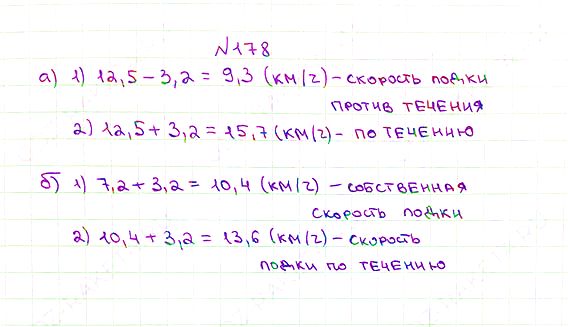 №178
а) 1) 12,5 – 3,2 = 9,3 (км/ч) – скорость лодки
против течения
2) 12,5 + 3,2 = 15,7 (км/ч) – по течению
б) 1) 7,2 + 3,2 = 10,4 (км/ч) – собственная
скорость лодки
2) 10,4 + 3,2 = 13,6 (км/ч) – скорость
лодки по течению